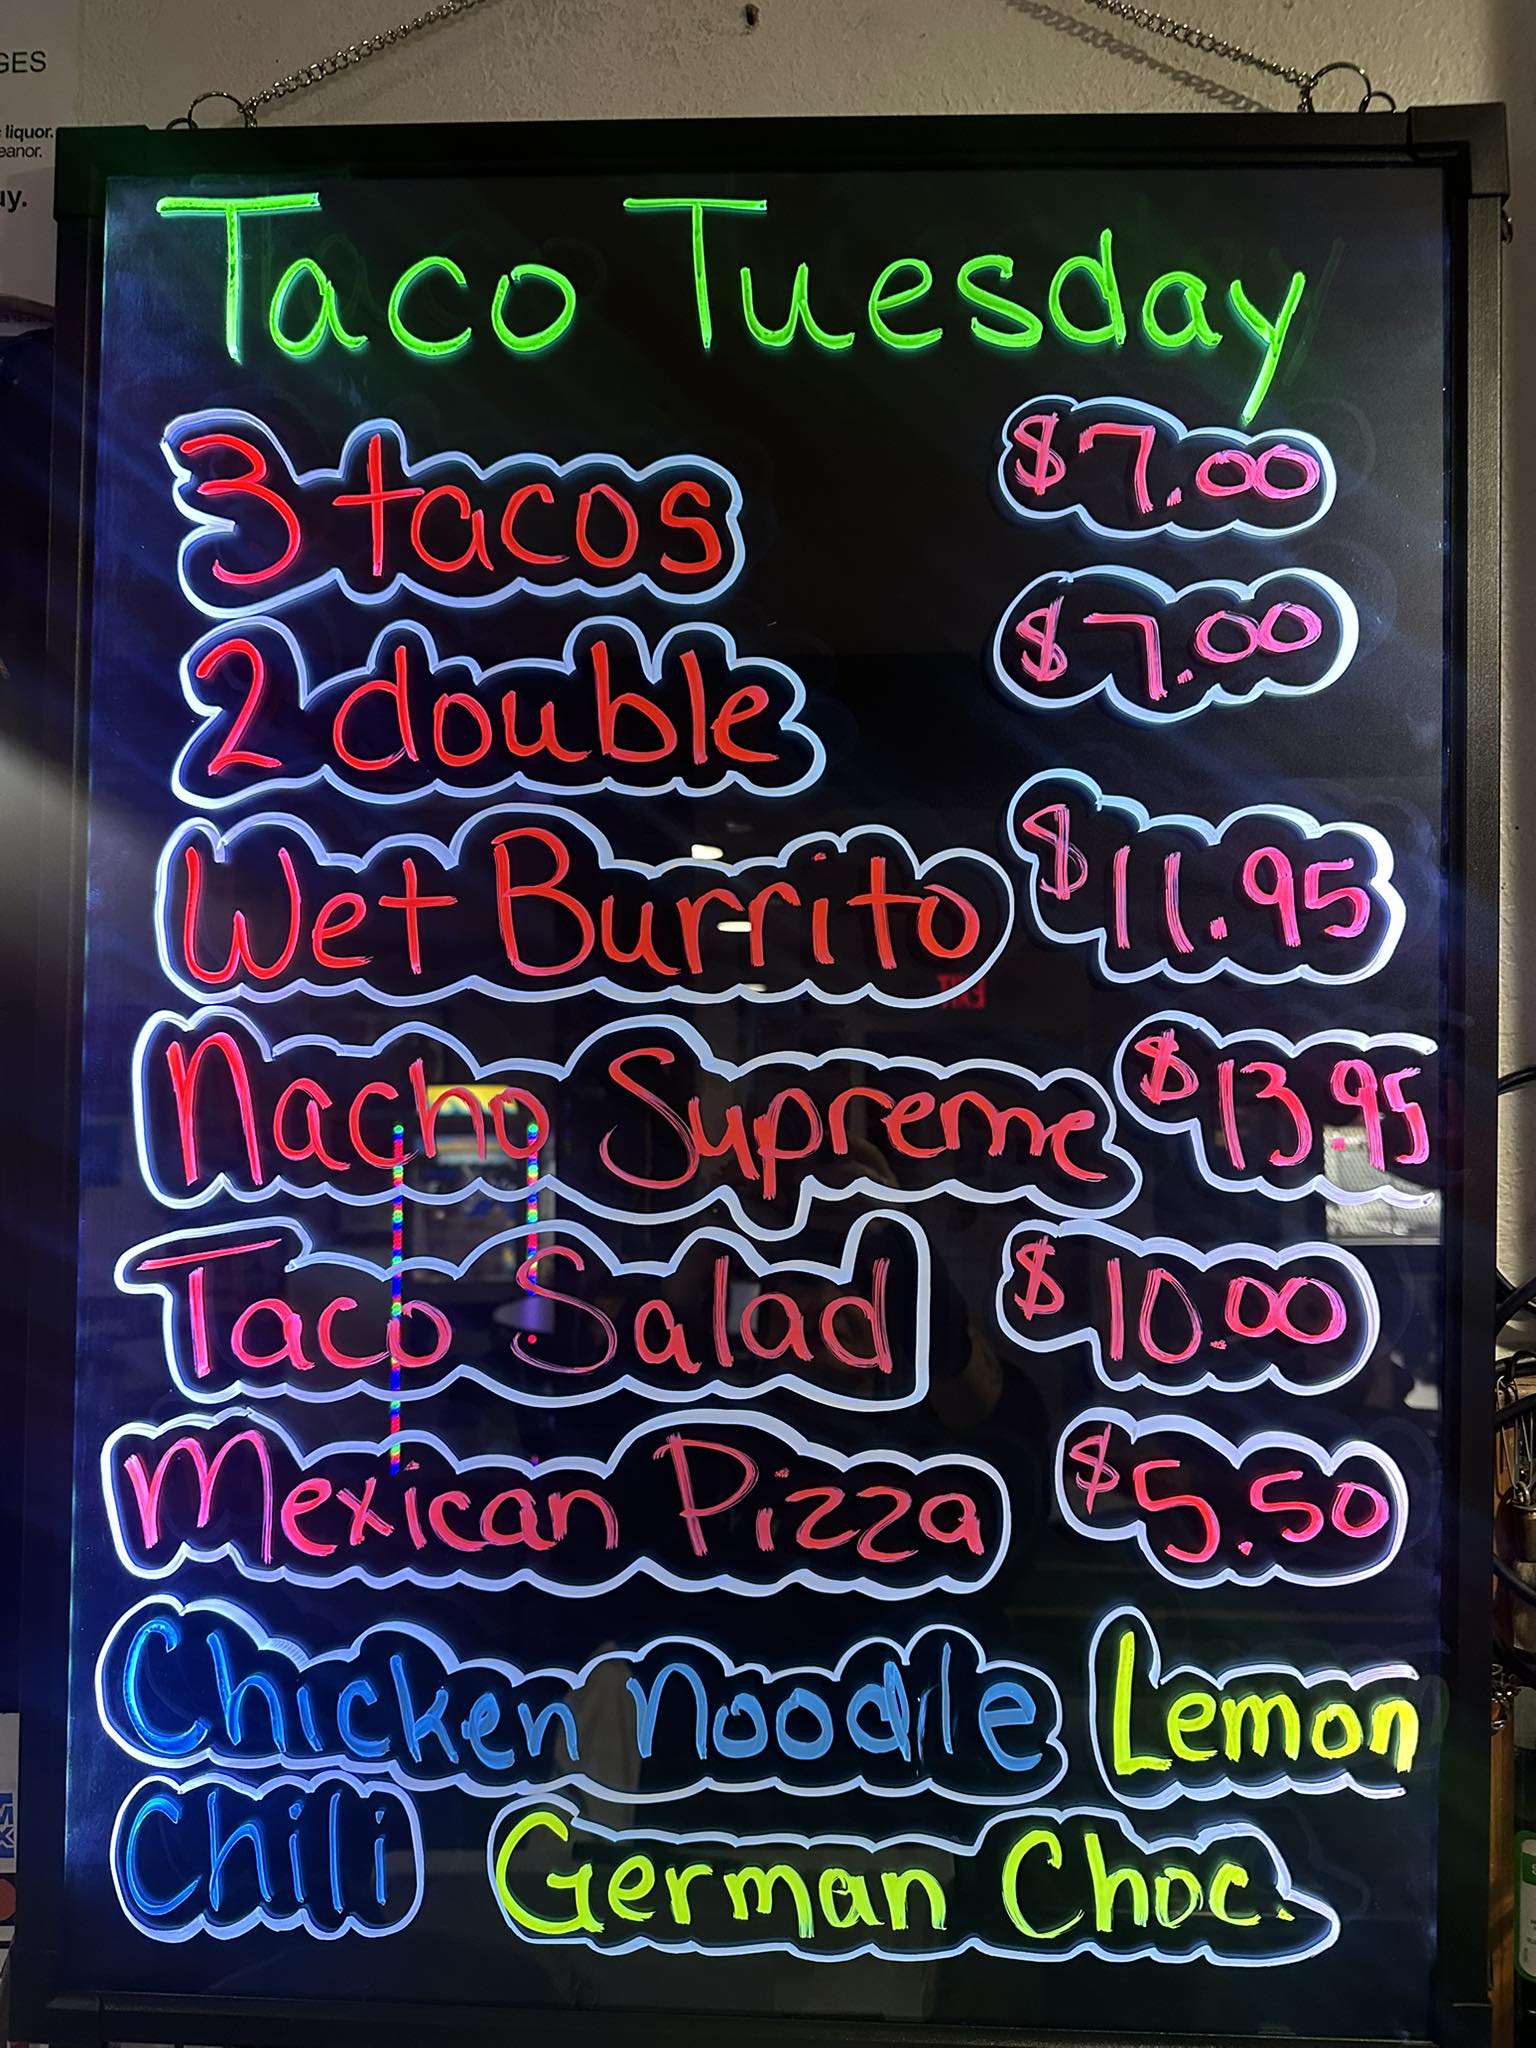 GES
liquor.
eanor.
uy.
Taco Tuesday
3 tacos $7.00
2 double $7.00
Wet Burrito $11.95
Nacho Supreme $13.95
Taco Salad $10.00
Mexican Pizza $5.50
Chicken Noodle Lemon
Chili German Choc.
EXIT